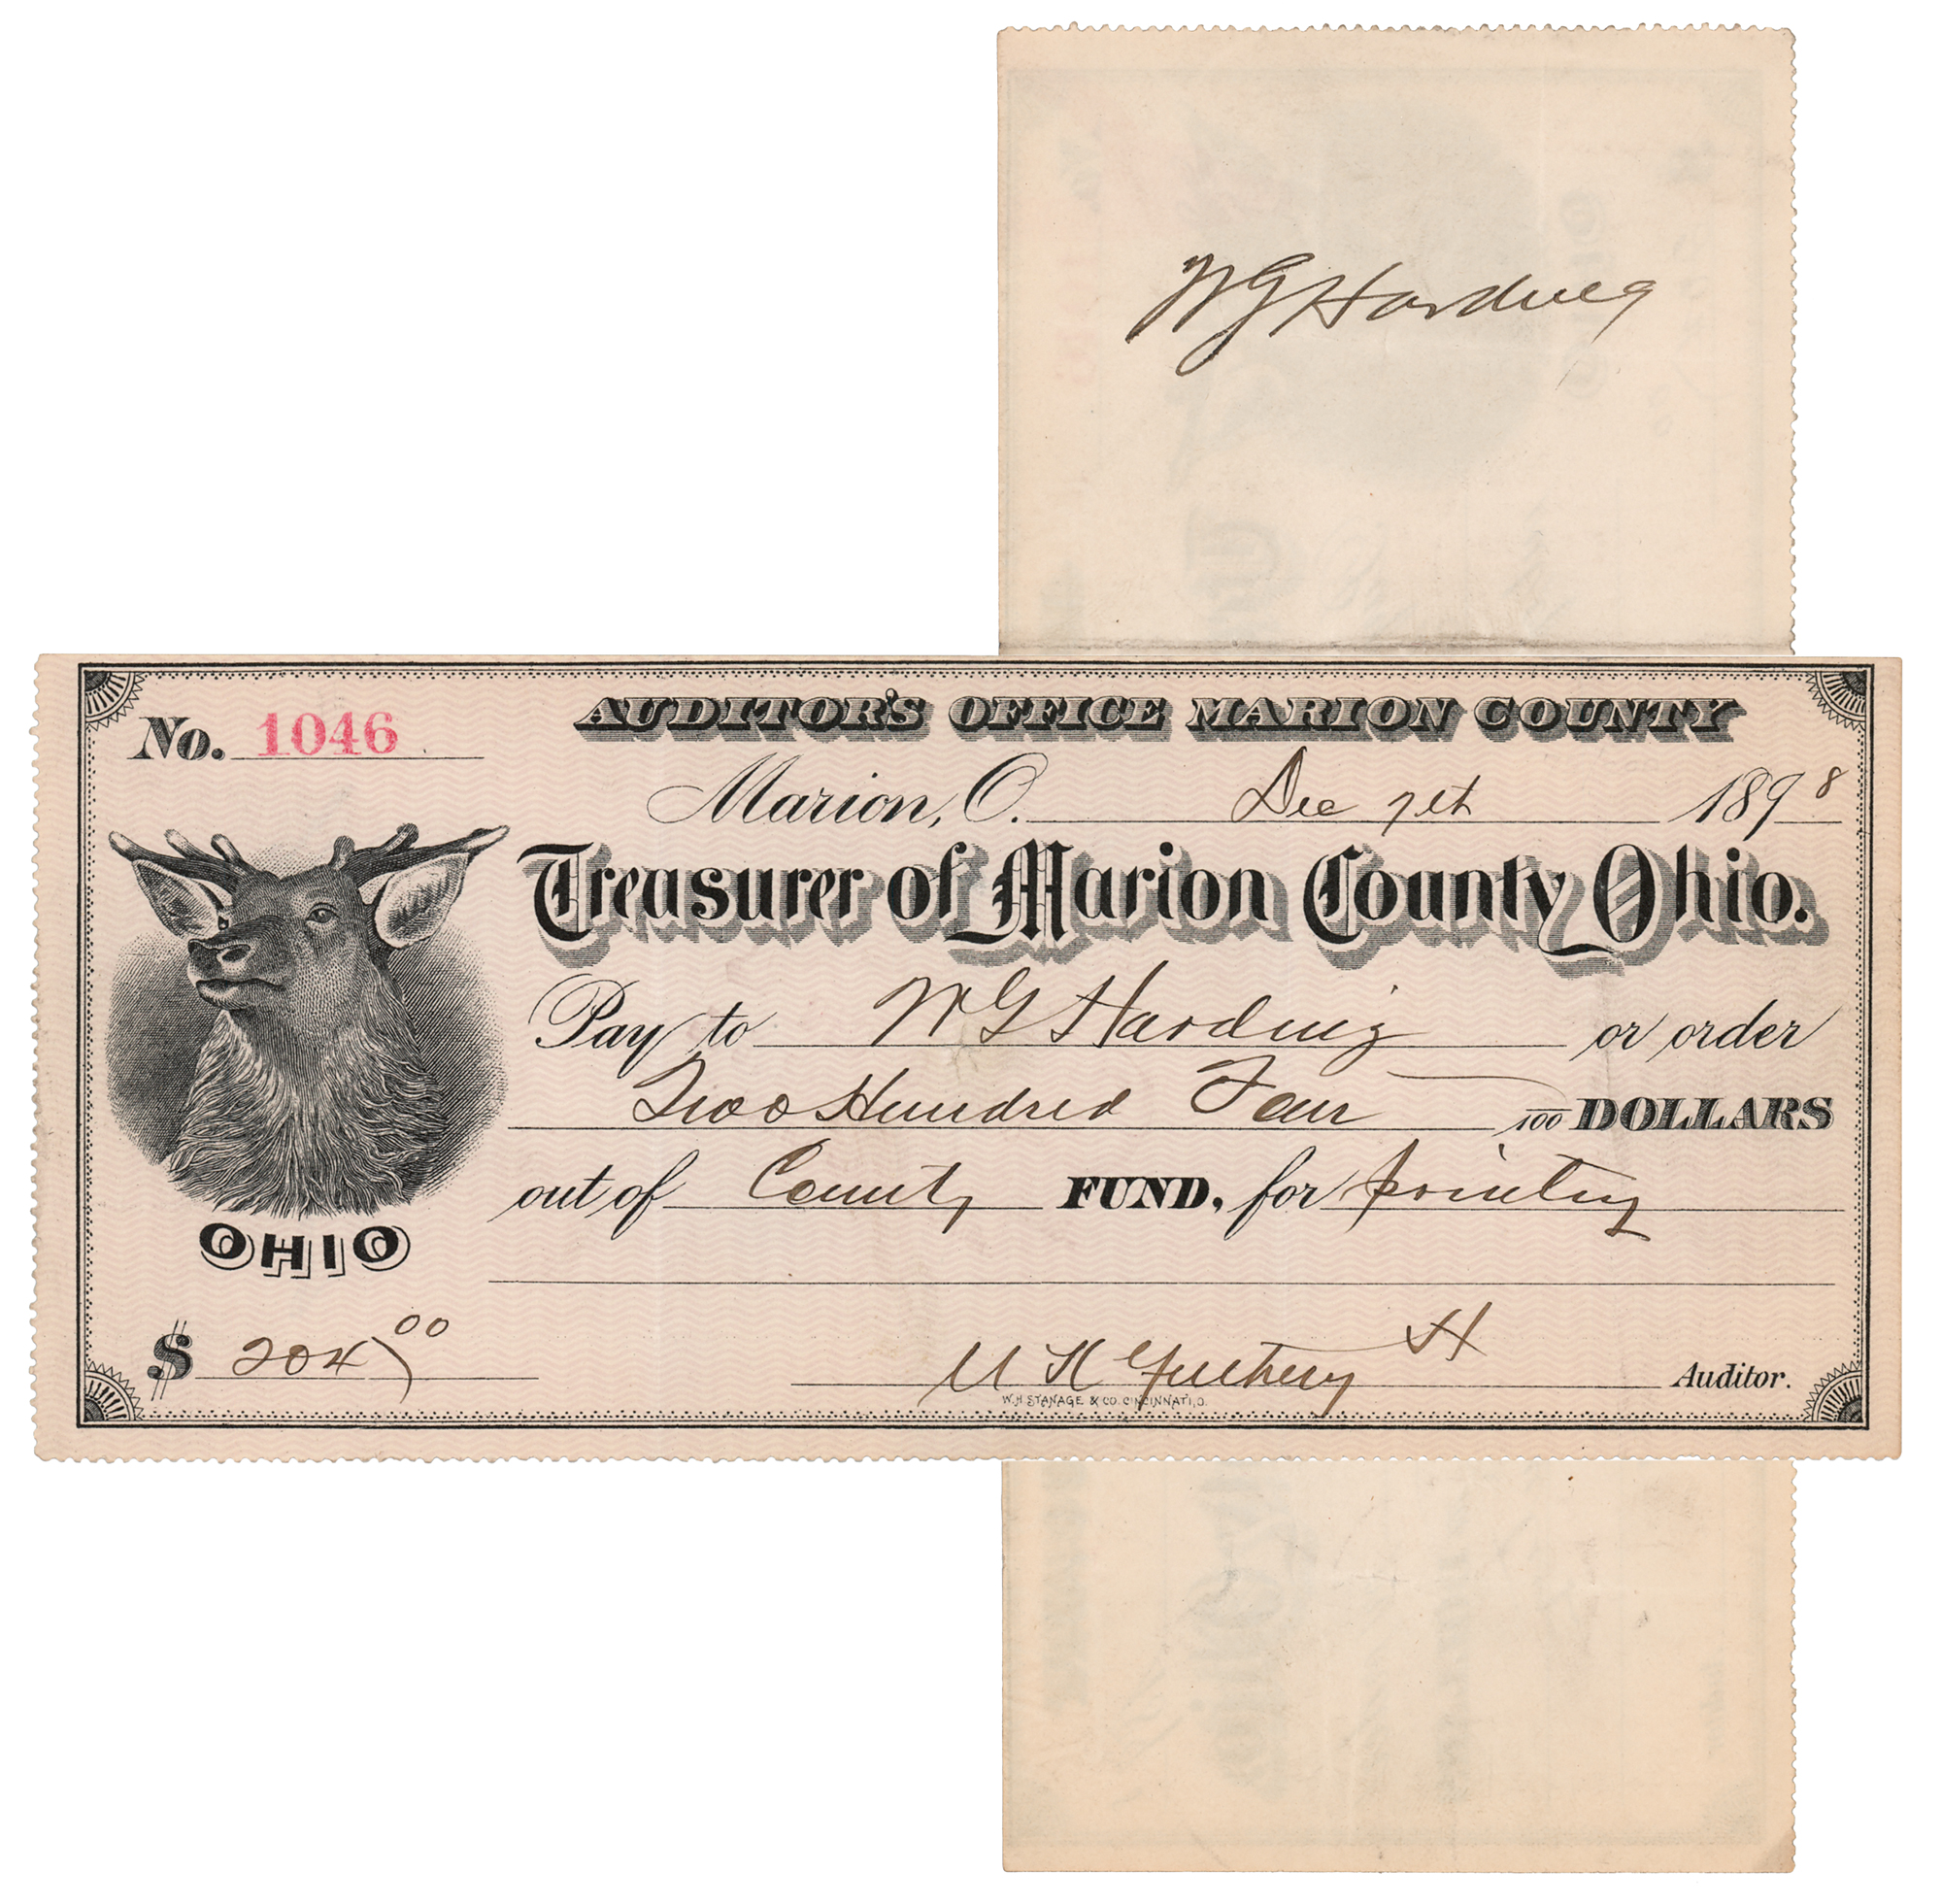 W G Harding
No. 1046
AUDITOR'S OFFICE MARION COUNTY
Marion, O. Dec 7th 1898
Treasurer of Marion County Ohio.
Pay to W G Harding or order
Two Hundred Four /100 DOLLARS
out of County FUND, for printing
OHIO
$ 204 00
U K Guthery H Auditor.
W.H. STANAGE & CO. CINCINNATI, O.